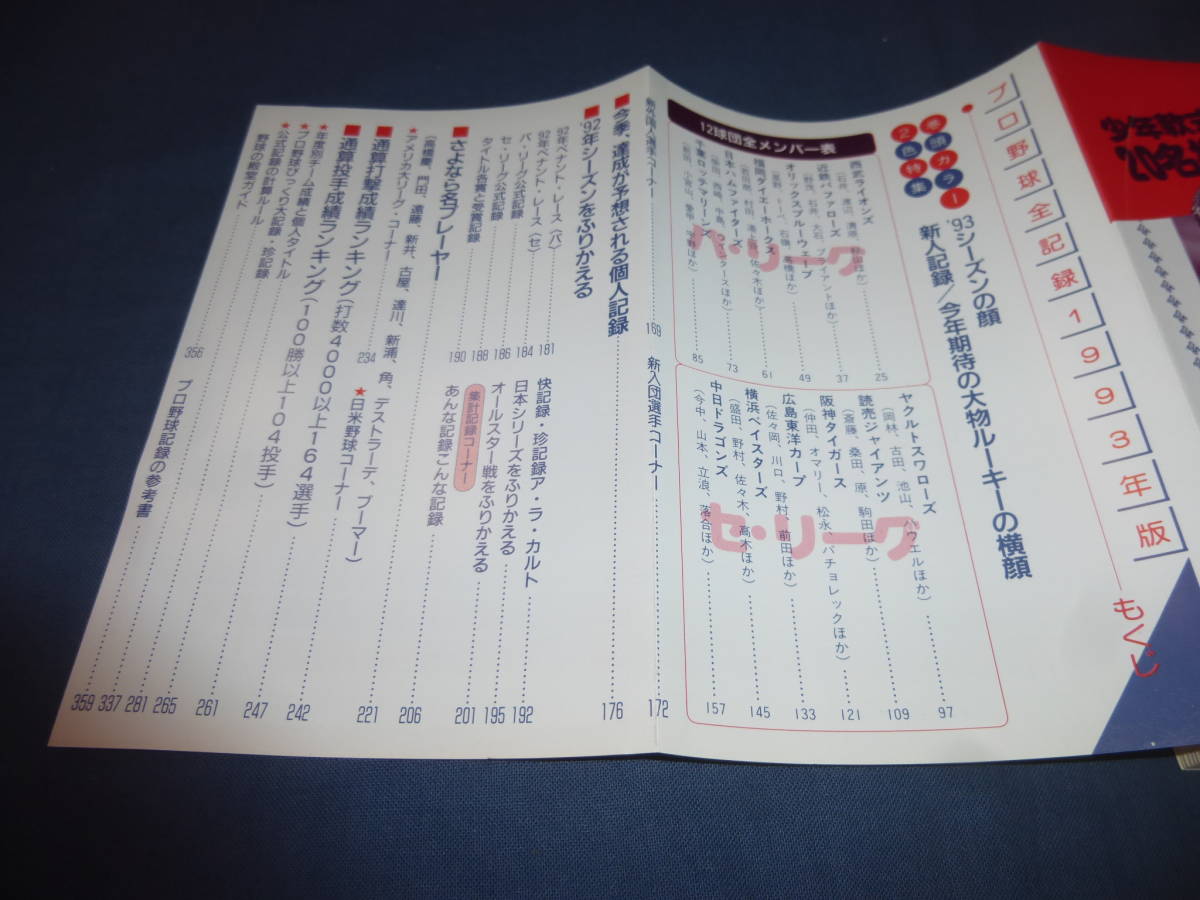 プロ野球全記録1993年版
もくじ
巻頭カラー2色特集
'93シーズンの顔
新人記録/今年期待の大物ルーキーの横顔
12球団全メンバー表
パ・リーグ
西武ライオンズ 25
近鉄バファローズ 37
オリックスブルーウェーブ 49
福岡ダイエーホークス 61
日本ハムファイターズ 73
千葉ロッテマリーンズ 85
セ・リーグ
ヤクルトスワローズ 97
(岡林、古田、池山、ハウエルほか)
読売ジャイアンツ 109
(斎藤、桑田、原、駒田ほか)
阪神タイガース 121
(仲田、オマリー、松永、パチョレックほか)
広島東洋カープ 133
(佐々岡、川口、野村、前田ほか)
横浜ベイスターズ 145
(盛田、野村、佐々木、高木ほか)
中日ドラゴンズ 157
(今中、山本、立浪、落合ほか)
新外国人選手コーナー 169
新入団選手コーナー 172
■今季、達成が予想される個人記録 176
■'92年シーズンをふりかえる
92年ペナント・レース(パ) 181
92年ペナント・レース(セ) 184
パ・リーグ公式記録 186
セ・リーグ公式記録 188
タイトル各賞と受賞記録 190
快記録・珍記録ア・ラ・カルト 192
日本シリーズをふりかえる 195
オールスター戦をふりかえる 201
集計記録コーナー
あんな記録こんな記録 206
■さよなら名プレーヤー 221
(高橋慶、門田、遠藤、新井、古屋、達川、新浦、角、デストラーデ、ブーマー)
★アメリカ大リーグ・コーナー 234
★日米野球コーナー 242
■通算打撃成績ランキング(打数4000以上164選手) 247
■通算投手成績ランキング(100勝以上104投手) 261
★年度別チーム成績と個人タイトル 265
★プロ野球びっくり大記録・珍記録 281
★公式記録の計算ルール 337
野球の殿堂ガイド 356
プロ野球記録の参考書 359